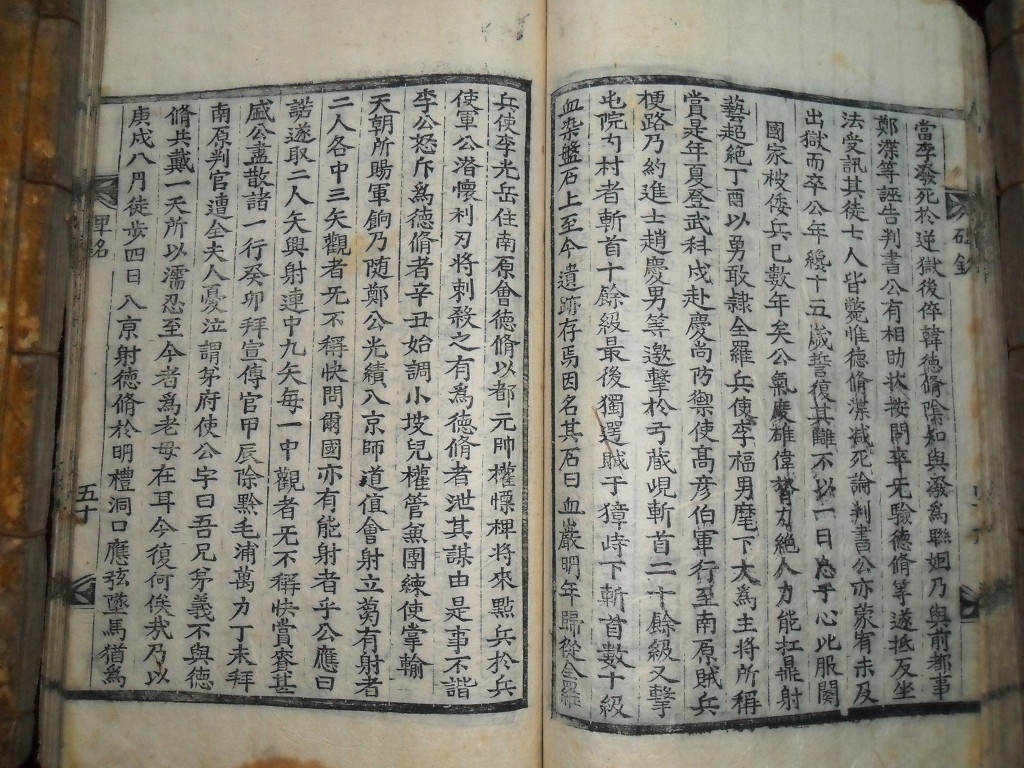 當李潑死於逆獄後倅韓德脩陰知與潑爲聯姻乃與前都事
鄭渫等誣告判書公有相助狀按問卒无驗德脩等遂抵反坐
法受訊其徒士人皆斃惟德脩渫减死論判書公亦蒙宥未及
出獄而卒公年纔十五歲誓復其讎不以一日忘乎心此服闋
國家被倭兵已數年矣公氣度雄偉膂力絕人力能扛鼎射
藝超絕丁酉以勇敢隸全羅兵使李福男麾下大為主將所稱
賞是年夏登武科戍赴慶尚防禦使高彦伯軍行至南原賊兵
梗路乃約進士趙慶男等邀擊於弓藏峴斬首二十餘級又擊
屯院內村者斬首十餘級最後獨遇賊于獐峙下斬首數十級
血染盤石上至今遺跡存焉因名其石曰血巖明年歸從全羅
兵使李光岳住南原會德脩以都元帥權慄稗將來㸃兵於兵
使軍公潜懷利刃將刺殺之有爲德脩者泄其謀由是事不諧
李公怒斥爲德脩者辛丑始調小坡兒權管魚團練使掌輸
天朝所賜軍餉乃随鄭公光績入京師道值會射立蒭有射者
二人各中三矢觀者无不稱快問爾國亦有能射者乎公應曰
諾遂取二人矢與射連中九矢每一中觀者无不稱快賞賚甚
盛公盡散諸一行癸卯拜宣傳官甲辰除黔毛浦萬力丁未拜
南原判官遭金夫人憂泣謂弟府使公字曰吾兄弟義不與德
脩共戴一天所以濡忍至今者爲老母在耳今復何俟㦲乃以
庚戌八月徒步四日入京射德脩於明禮洞口應弦墜馬猶爲
碑銘
五十